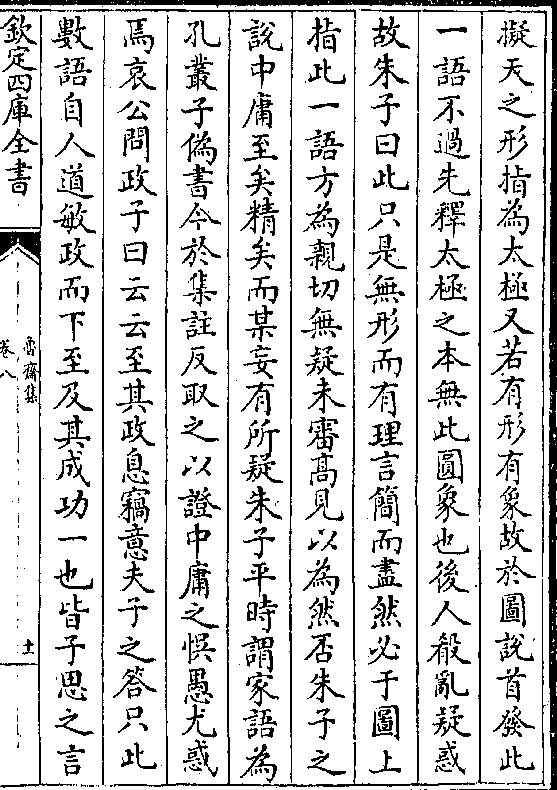 擬天之形指為太極又若有形有象故於圖說首發此
一語不過先釋太極之本無此圓象也後人殽亂疑惑
故朱子曰此只是無形而有理言簡而盡然必于圖上
指此一語方為親切無疑未審髙見以為然否朱子之
說中庸至矣精矣而某妄有所疑朱子平時謂家語為
孔叢子偽書今於集註反取之以證中庸之悞愚尤惑
焉哀公問政子曰云云至其政息竊意夫子之答只此
數語自人道敏政而下至及其成功一也皆子思之言
欽定四庫全書
魯齋集
卷八
十一